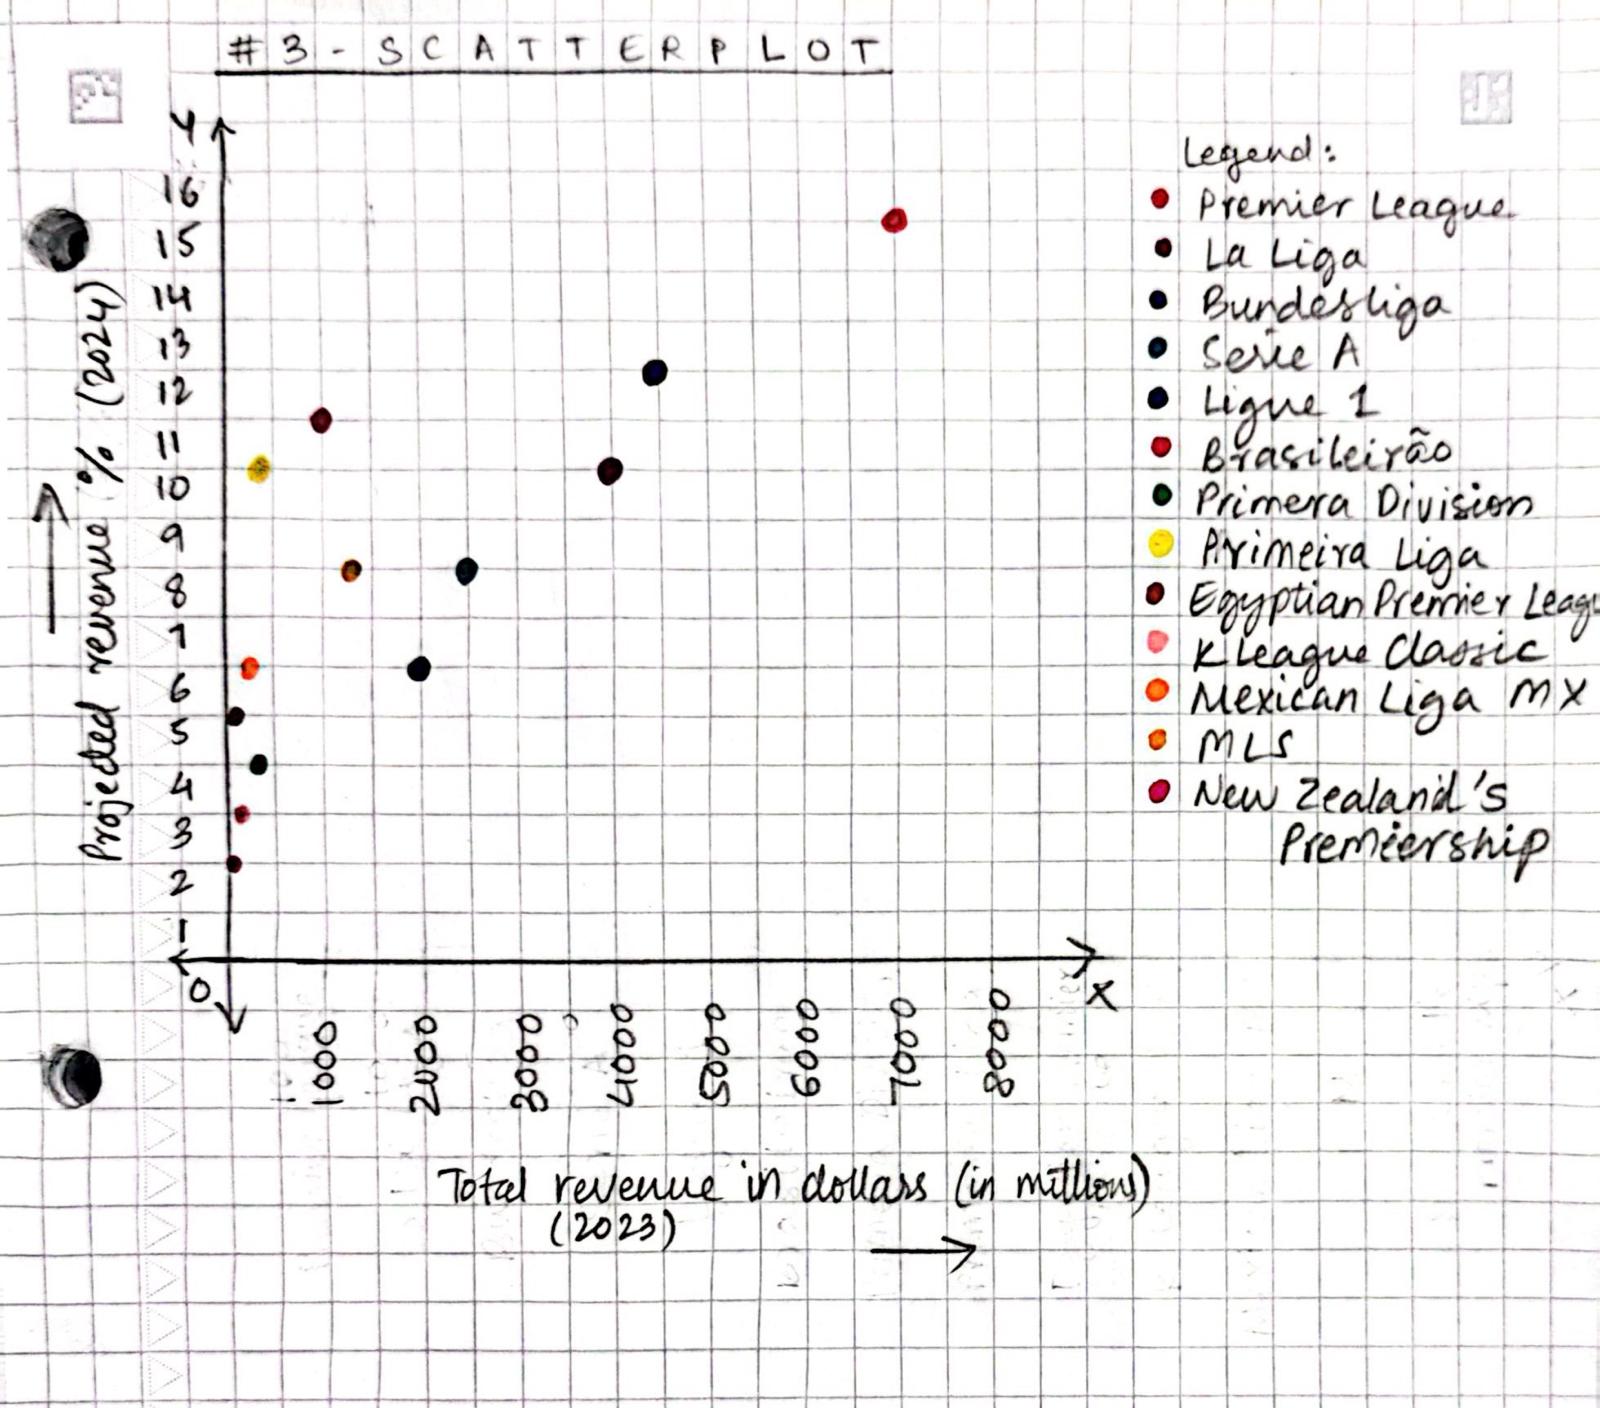 #3-SCATTERPLOT
Y
16
15
14
13
12
11
10
9
8
7
6
5
4
3
2
1
0
Projected revenue % (2024)
1000
2000
3000
4000
5000
6000
7000
8000
X
Total revenue in dollars (in millions)
(2023)
Legend:
Premier League
La Liga
Bundesliga
Serie A
Ligue 1
Brasileirão
Primera Division
Primeira Liga
Egyptian Premier Leagu
K League Classic
Mexican Liga MX
MLS
New Zealand's
Premiership